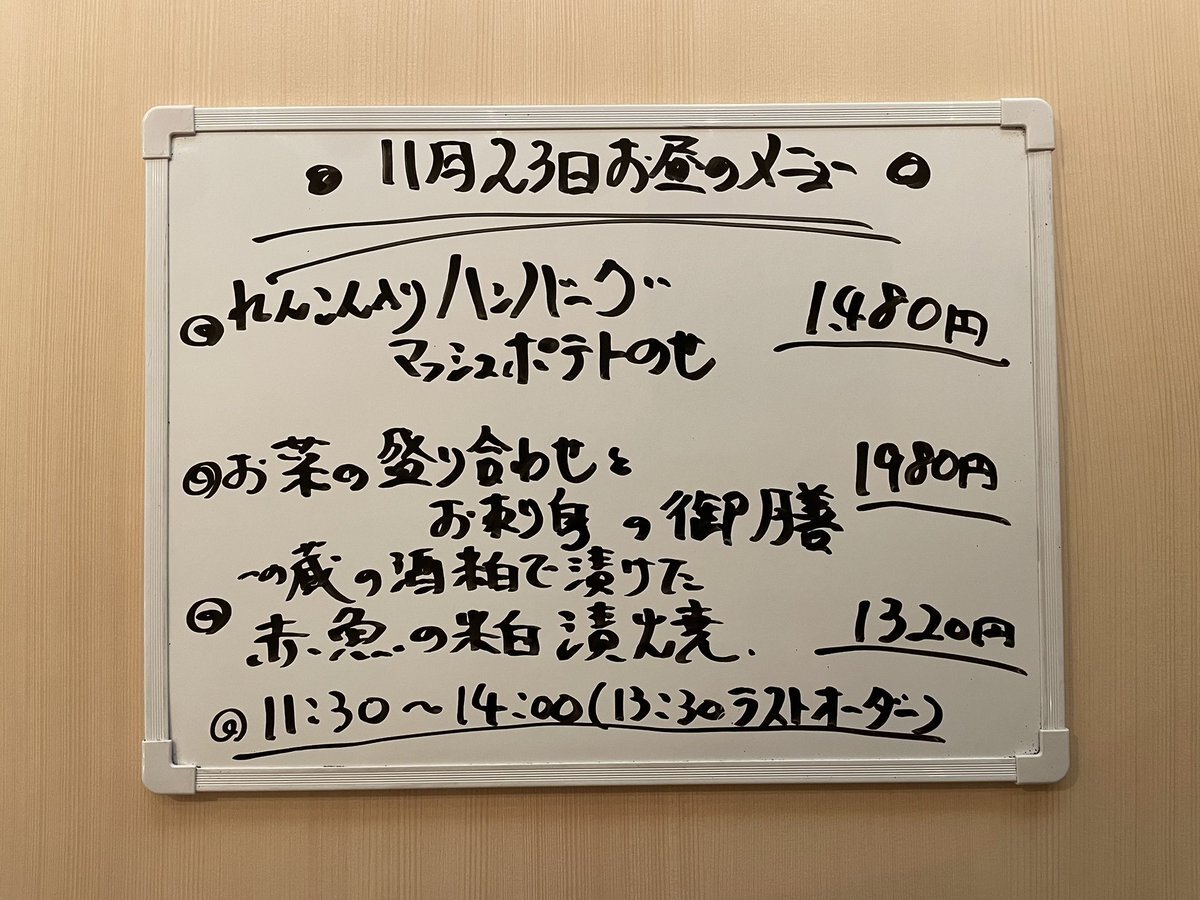 11月23日お昼のメニュー
れんこん入りハンバーグ 1,480円
マッシュポテトのせ
お菜の盛り合わせと 1980円
お刺身の御膳
一の蔵の酒粕で漬けた
赤魚の粕漬焼 1320円
11:30〜14:00(13:30ラストオーダー)